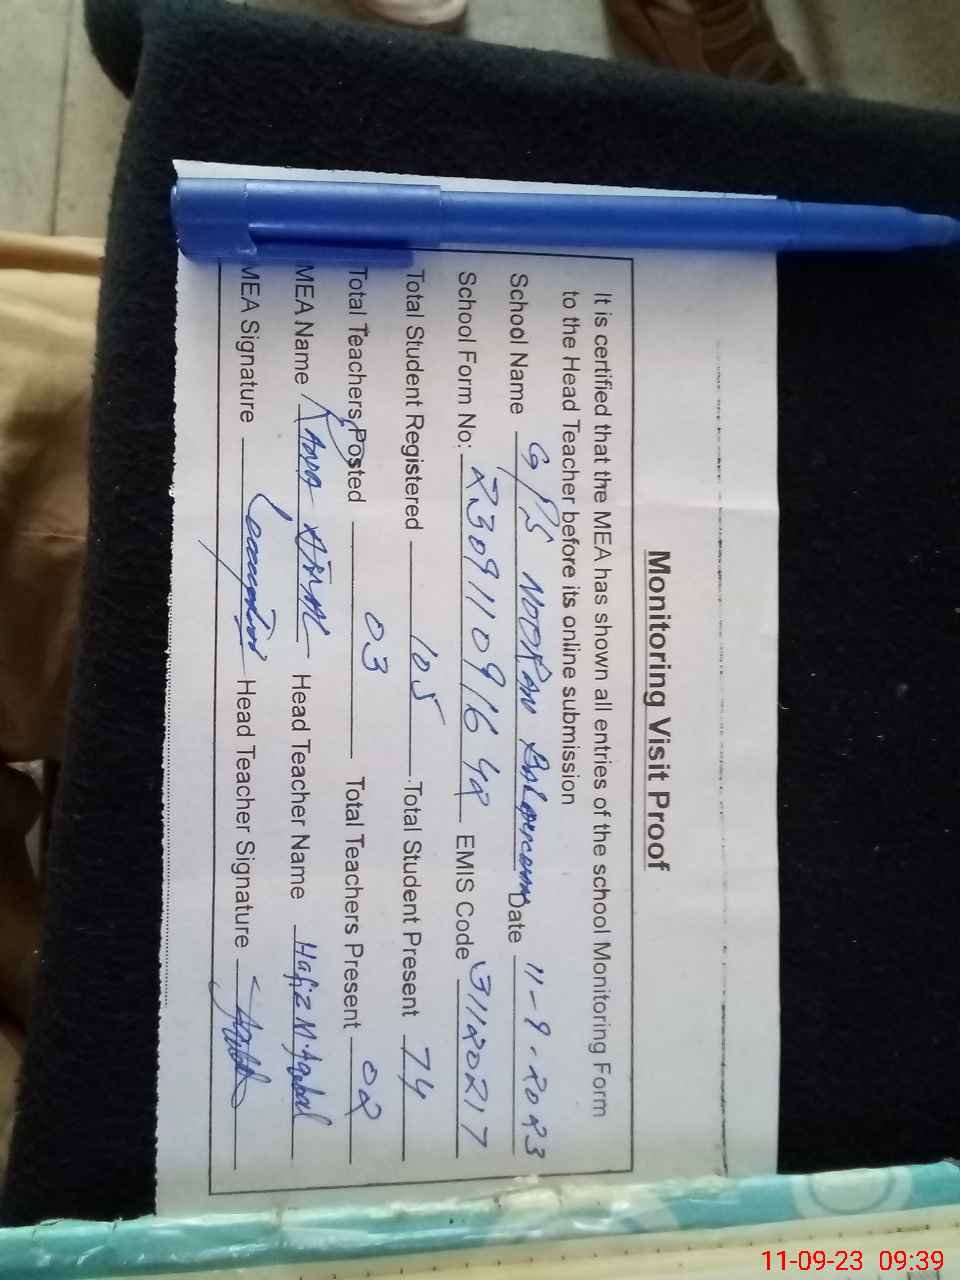 Monitoring Visit Proof
It is certified that the MEA has shown all entries of the school Monitoring Form
to the Head Teacher before its online submission
School Name G/P/S NOORAN Date 11-9-2023
School Form No: 2309110916 42 EMIS Code 31120217
Total Student Registered 105 Total Student Present 74
Total Teachers Posted 03 Total Teachers Present 02
MEA Name Head Teacher Name Hafiz M. Aqbal
MEA Signature Head Teacher Signature
11-09-23 09:39